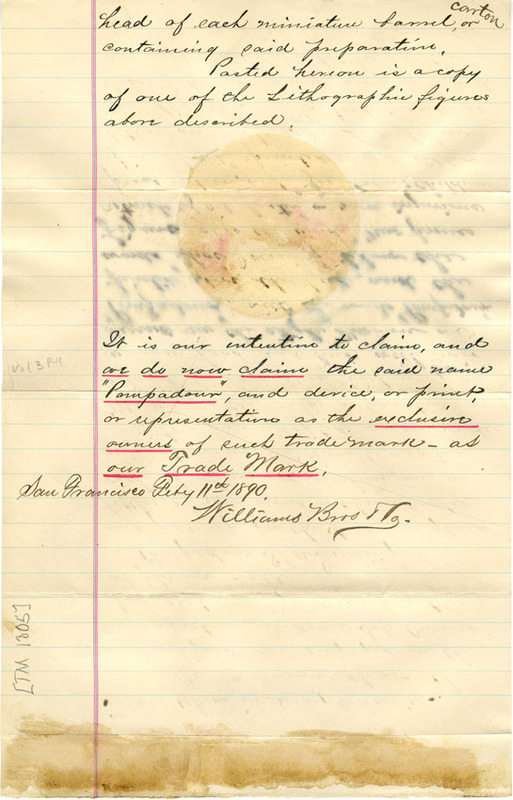 carton
head of each miniature barrel, or
containing said preparation.
Pasted hereon is a copy
of one of the Lithographic figures
above described.
It is our intention to claim, and
we do now claim the said name
"Pompadour", and device, or print,
or representation as the exclusive
owners of such trade mark - as
our Trade Mark.
San Francisco Feby 11th 1890.
Williams Bros & Co.
Vol 3 P-11
[TM 1805]